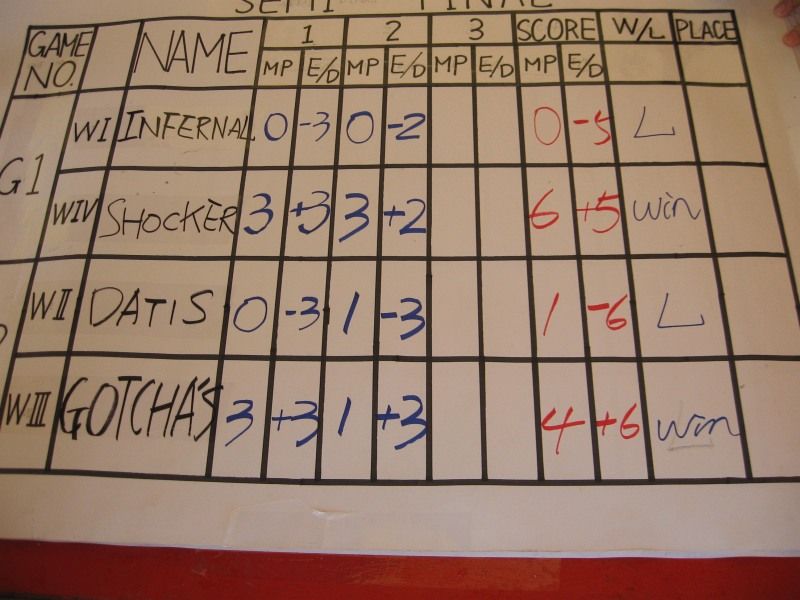 SEMI FINAL
GAME NO. NAME 1 2 3 SCORE W/L PLACE
MP E/D MP E/D MP E/D MP E/D
G1 WI INFERNAL 0 -3 0 -2 0 -5 L
WIV SHOCKER 3 +3 3 +2 6 +5 win
WII DATIS 0 -3 1 -3 1 -6 L
WIII GOTCHA'S 3 +3 1 +3 4 +6 win